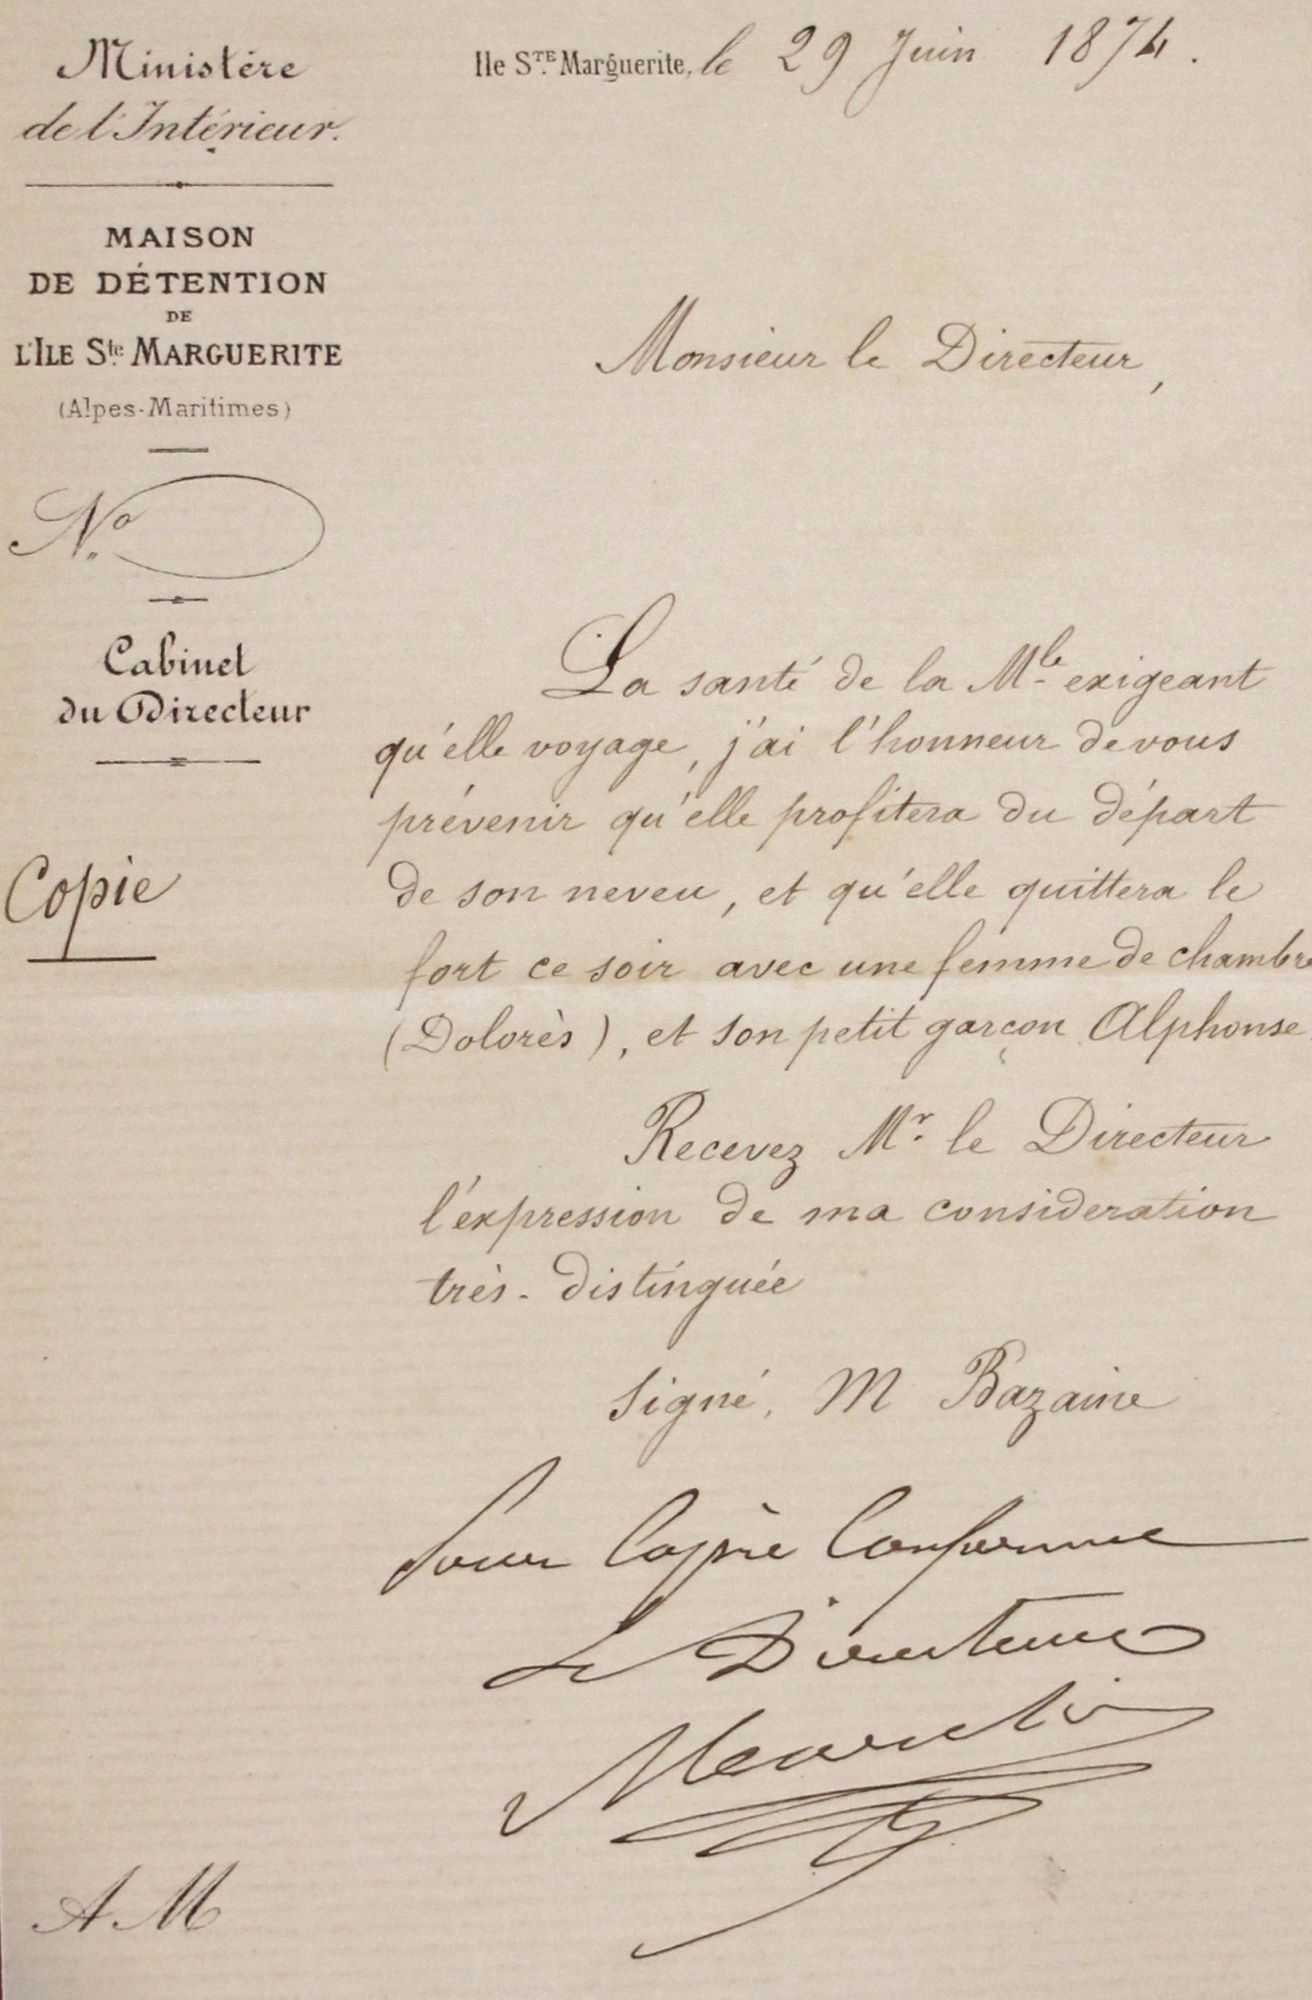 Ministère
de l'Intérieur.
MAISON
DE DÉTENTION
DE
L'ILE Ste MARGUERITE
(Alpes-Maritimes)
No.
Cabinet
du Directeur
Copie
Ile STE Marguerite, le 29 Juin 1874.
Monsieur le Directeur,
La santé de la Mle exigeant
qu'elle voyage, j'ai l'honneur de vous
prévenir qu'elle profitera du départ
de son neveu, et qu'elle quittera le
fort ce soir avec une femme de chambre
(Dolorès), et son petit garçon Alphonse.
Recevez Mr. le Directeur
l'expression de ma consideration
très-distinguée
Signé, M Bazaine
Pour Copie Conforme
Le Directeur
A M